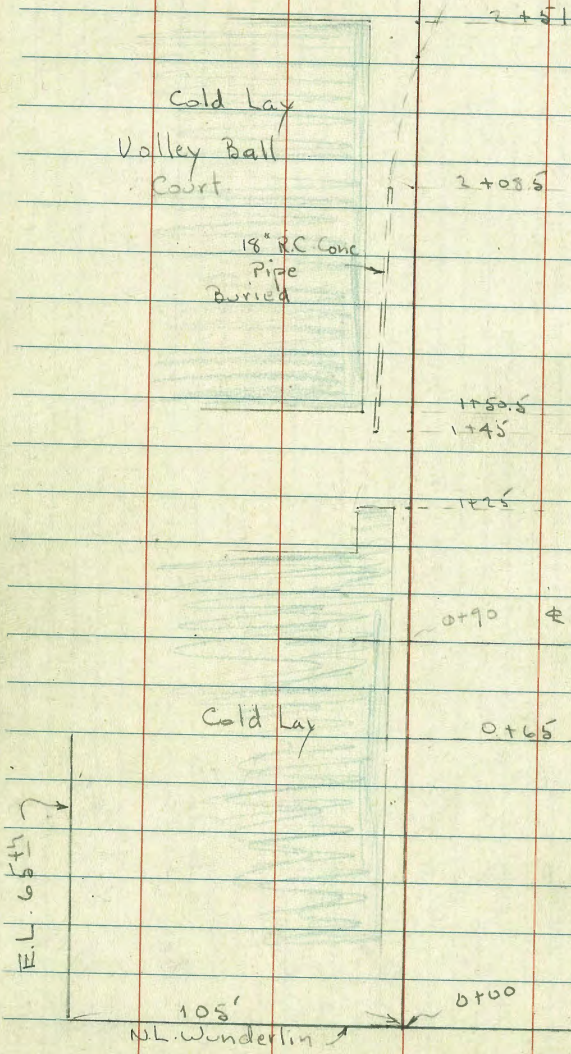 2+51
Cold Lay
Volley Ball
Court
2+08.5
18" R.C. Conc
Pipe
Buried
1+50.5
1+45
1+25
0+90 ℄
Cold Lay
0+65
E.L. 65th
0+00
105'
N.L. Wunderlin